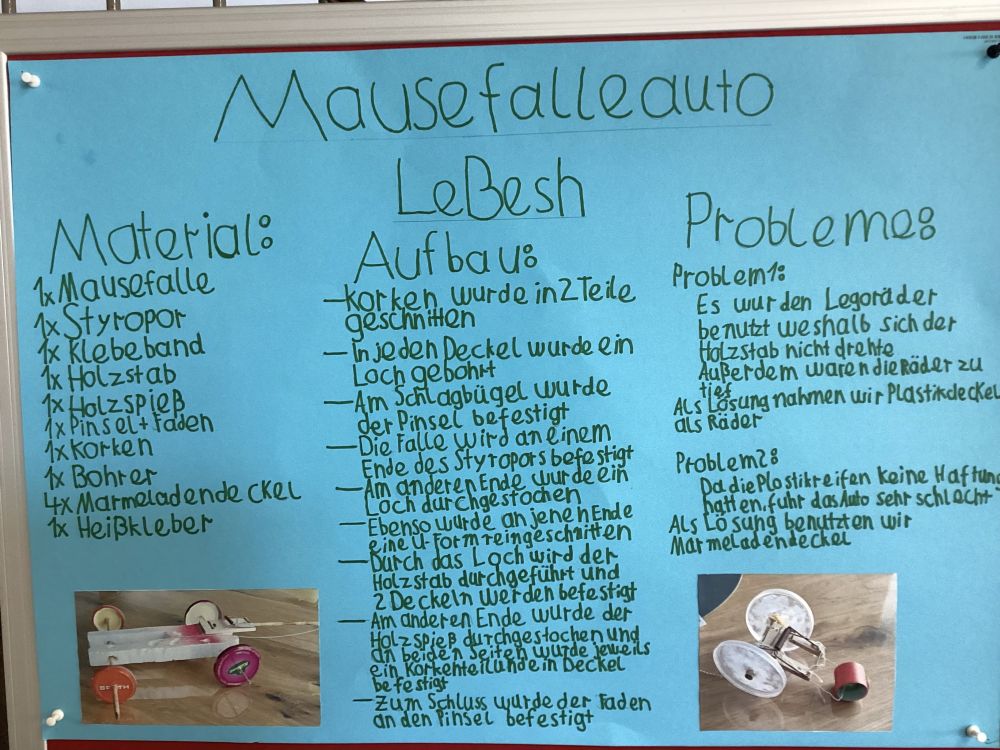 Mausefalleauto
LeBesh
Material:
1x Mausefalle
1x Styropor
1x Klebeband
1x Holzstab
1x Holzspieß
1x Pinsel + Faden
1x Korken
1x Bohrer
4x Marmeladendeckel
1x Heißkleber
Aufbau:
– Korken wurde in 2 Teile
geschnitten
– In jeden Deckel wurde ein
Loch gebohrt
– Am Schlagbügel wurde
der Pinsel befestigt
– Die Falle wird an einem
Ende des Styropors befestigt
– Am anderen Ende wurde ein
Loch durchgestochen
– Ebenso wurde an jenen Ende
eine U-Form reingeschnitten
– Durch das Loch wird der
Holzstab durchgeführt und
2 Deckeln werden befestigt
– Am anderen Ende wurde der
Holzspieß durchgestochen und
an beiden Seiten wurde jeweils
ein Korkenteil und ein Deckel
befestigt
– Zum Schluss wurde der Faden
an den Pinsel befestigt
Probleme:
Problem 1:
Es wurden Legoräder
benutzt weshalb sich der
Holzstab nicht drehte
Außerdem waren die Räder zu
tief
Als Lösung nahmen wir Plastikdeckel
als Räder
Problem 2:
Da die Plastikreifen keine Haftung
hatten, fuhr das Auto sehr schlecht
Als Lösung benutzten wir
Marmeladendeckel